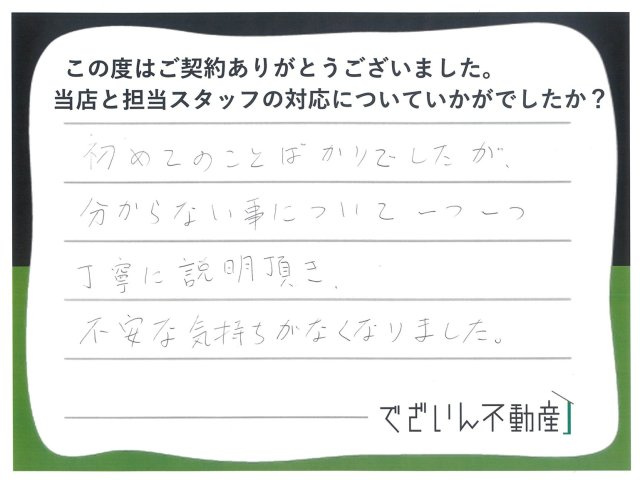 この度はご契約ありがとうございました。
当店と担当スタッフの対応についていかがでしたか？
初めてのことばかりでしたが、
分からない事について一つ一つ
丁寧に説明頂き、
不安な気持ちがなくなりました。
でざいん不動産